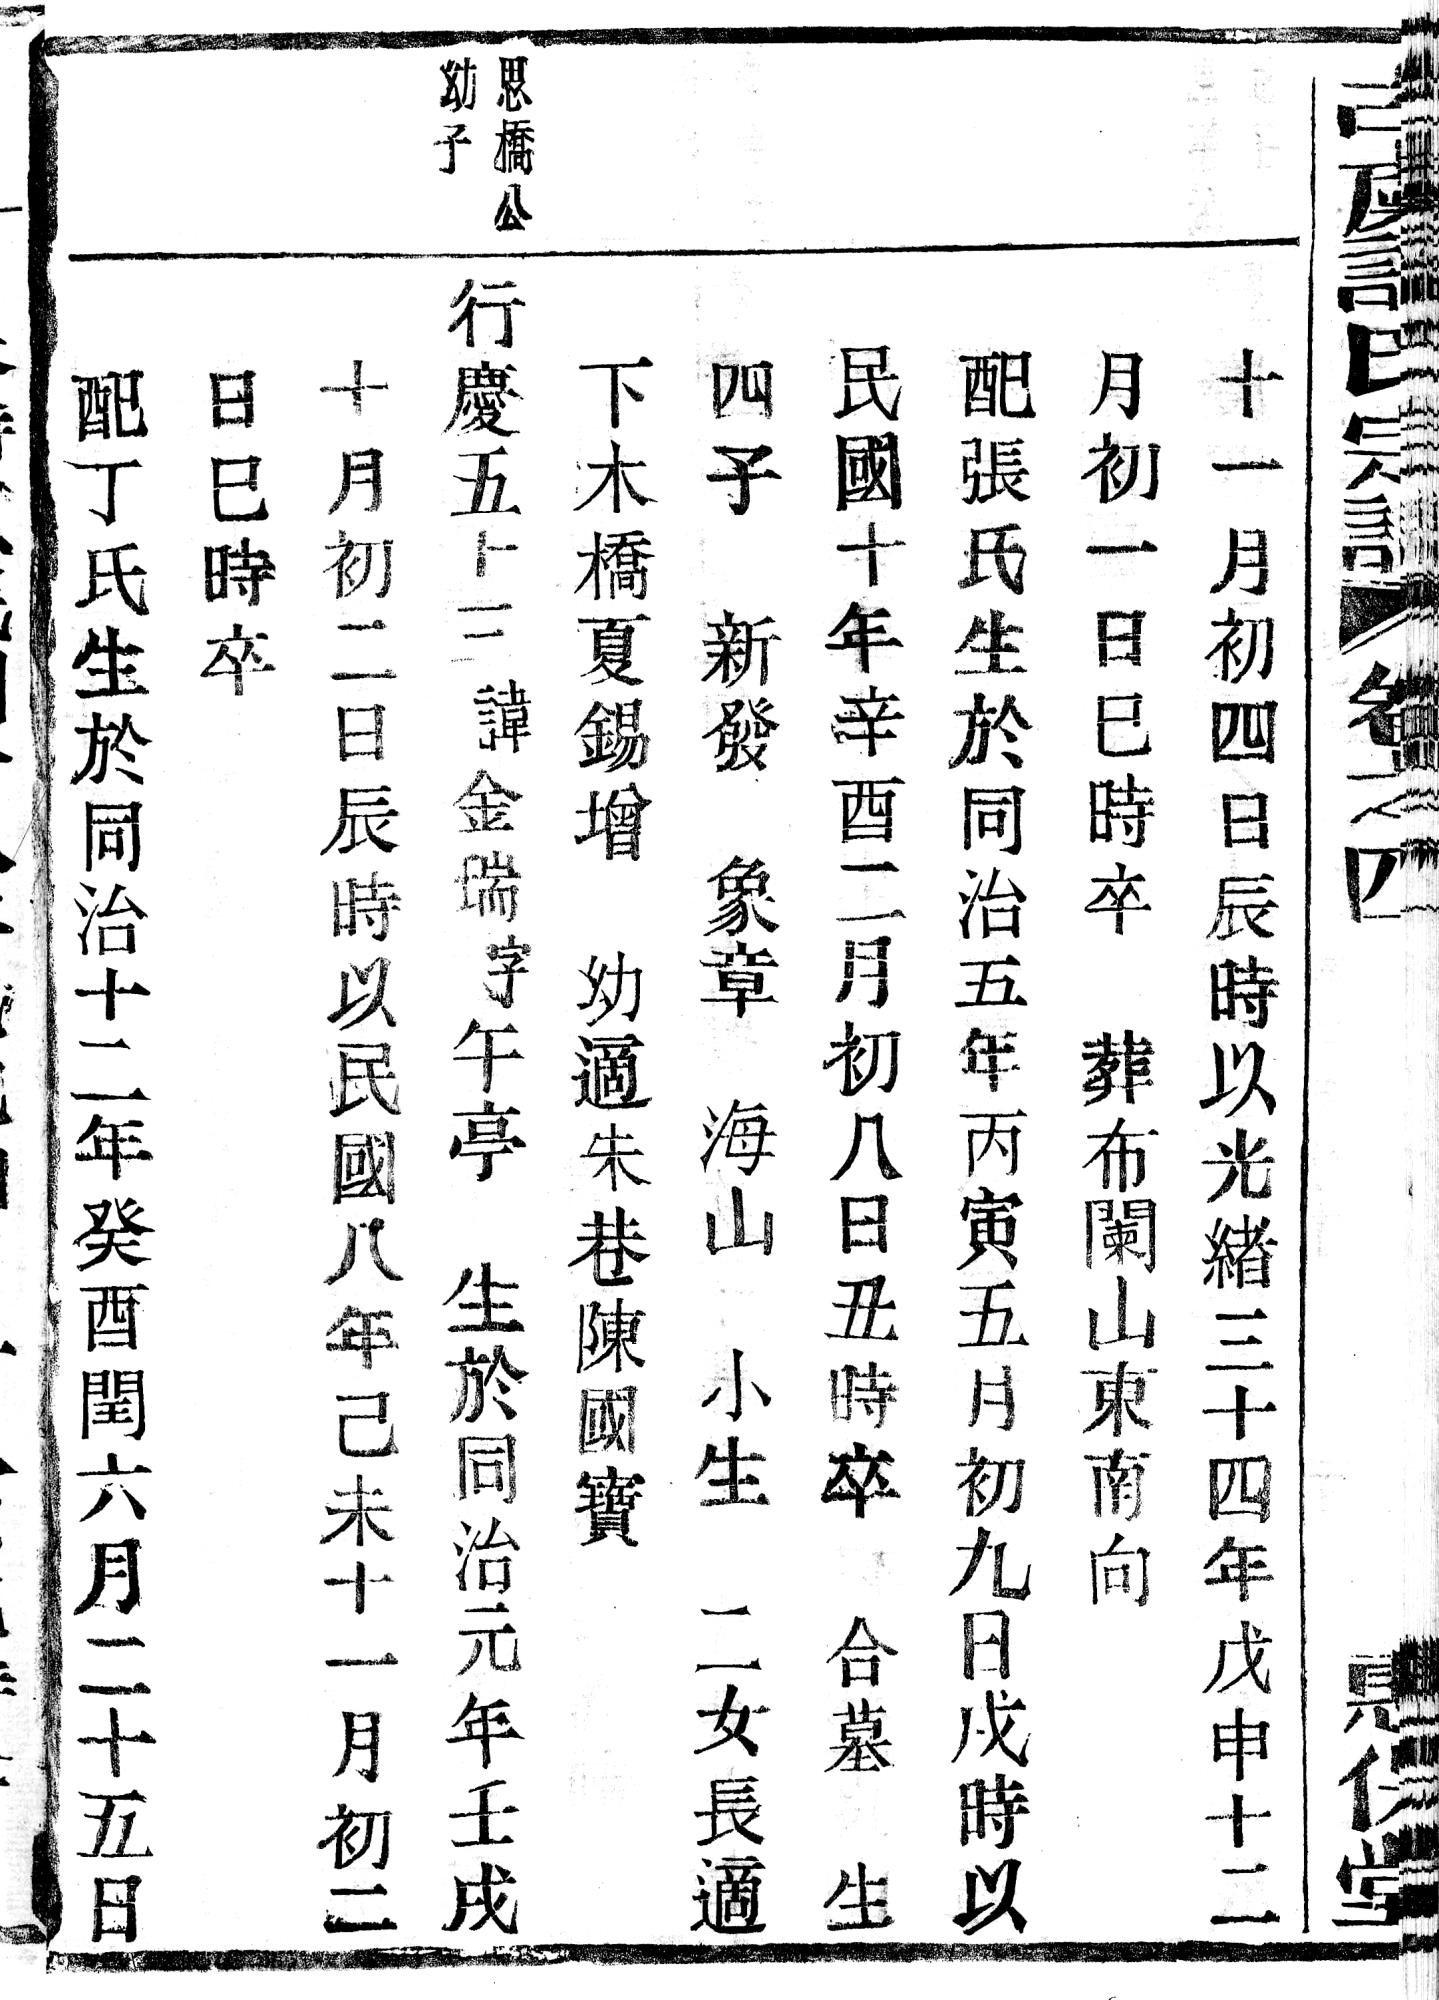 氏宗譜 卷之四
十一月初四日辰時以光緒三十四年戊申十二
月初一日巳時卒 葬布闌山東南向
配張氏生於同治五年丙寅五月初九日戌時以
民國十年辛酉二月初八日丑時卒 合墓 生
四子 新發 象章 海山 小生 二女長適
下木橋夏錫增 幼適朱巷陳國寶
思橋公
幼子
行慶五十三諱金瑞字午亭 生於同治元年壬戌
十月初二日辰時以民國八年己未十一月初二
日巳時卒
配丁氏生於同治十二年癸酉閏六月二十五日